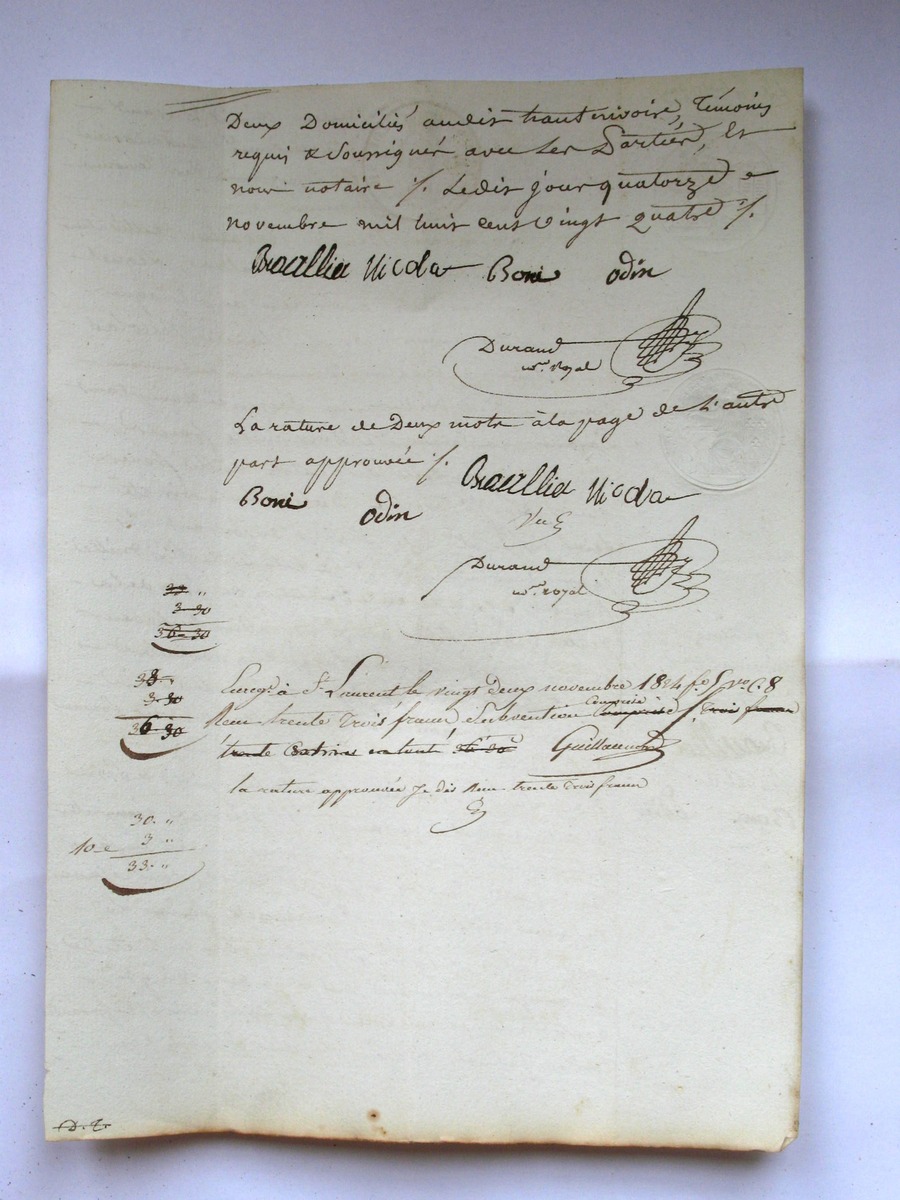 Deux Domiciliés audit hauterivoire, Témoins
requis & Soussignés avec les Parties, Et
nous notaire ·/. Ledit jour quatorze
novembre mil huit cent vingt quatre ·/.
Nicola Boni odin
Durand
n.re royal
La rature de Deux mots à la page de L'autre
part approuvée ·/.
Nicola
Boni odin
Durand
n.re royal
33 "
3-30
36-30
33 "
3-30
36 30
Enreg.é à S.t Laurent le vingt deux novembre 1824 f.o 5 v.o C. 8
Reçu trente Trois francs Subvention comprise comprise Trois francs
trente Centimes en tout 36.30 Guillaumond
la rature approuvée Je dis Reçu trente Trois francs
30. "
10.e 3 "
33. "
D. T.